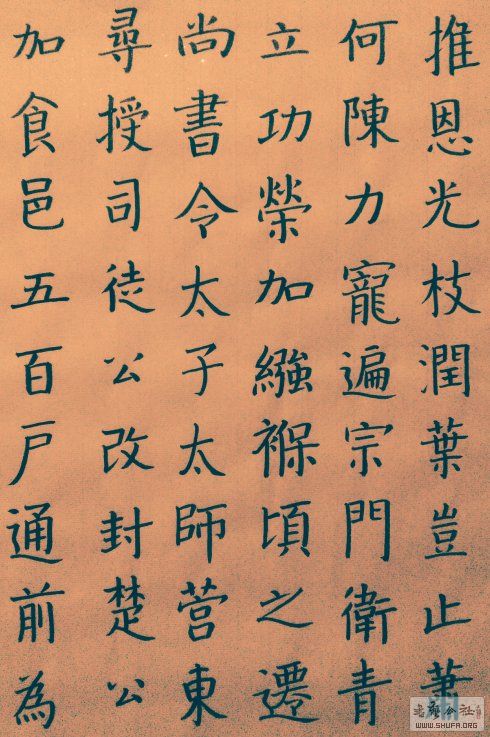 推恩光枝潤葉豈止蕭
何陳力寵遍宗門衛青
立功榮加繈褓頃之遷
尚書令太子太師營東
尋授司徒公改封楚公
加食邑五百戶通前為
WWW.SHUFA.ORG